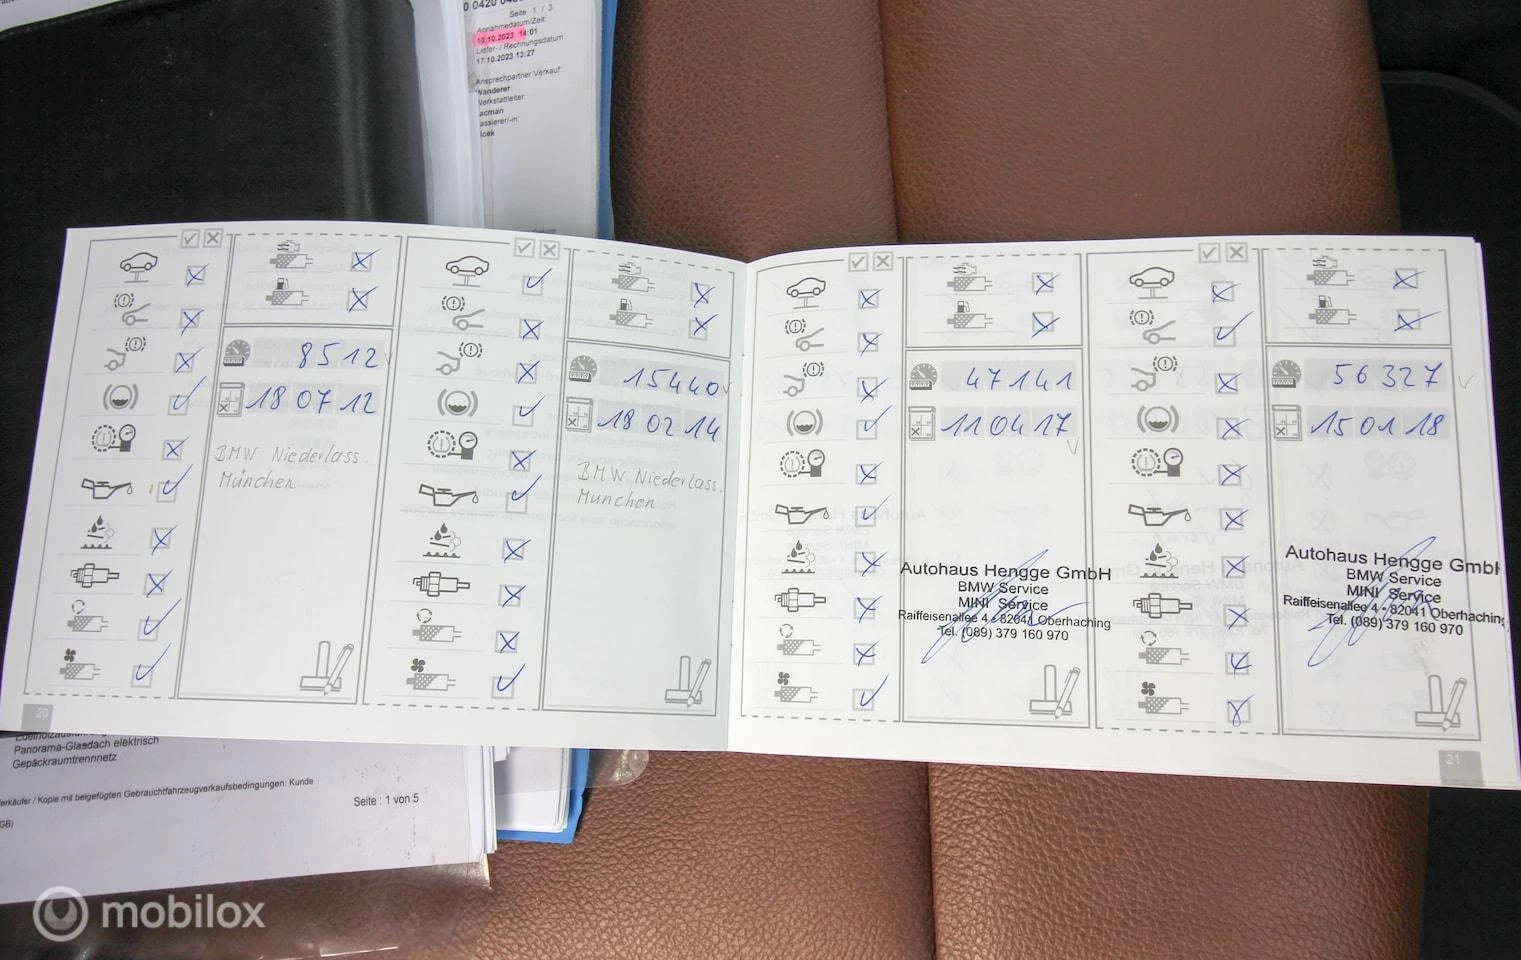 Seite 1 / 3
Annahmedatum/Zeit:
10.10.2023 14:01
Liefer- / Rechnungsdatum
17.10.2023 13:27
Ansprechpartner Verkauf
Wanderer
8512
18 07 12
BMW Niederlass.
München
15440
18 02 14
BMW Niederlass.
München
20
47141
11 04 17
Autohaus Hengge GmbH
BMW Service
MINI Service
Raiffeisenallee 4 • 82041 Oberhaching
Tel. (089) 379 160 970
56327
15 01 18
Autohaus Hengge GmbH
BMW Service
MINI Service
Raiffeisenallee 4 • 82041 Oberhaching
Tel. (089) 379 160 970
21
Panorama-Glasdach elektrisch
Gepäckraumtrennnetz
/ Kopie mit beigefügten Gebrauchtfahrzeugverkaufsbedingungen: Kunde
Seite : 1 von 5
mobilox